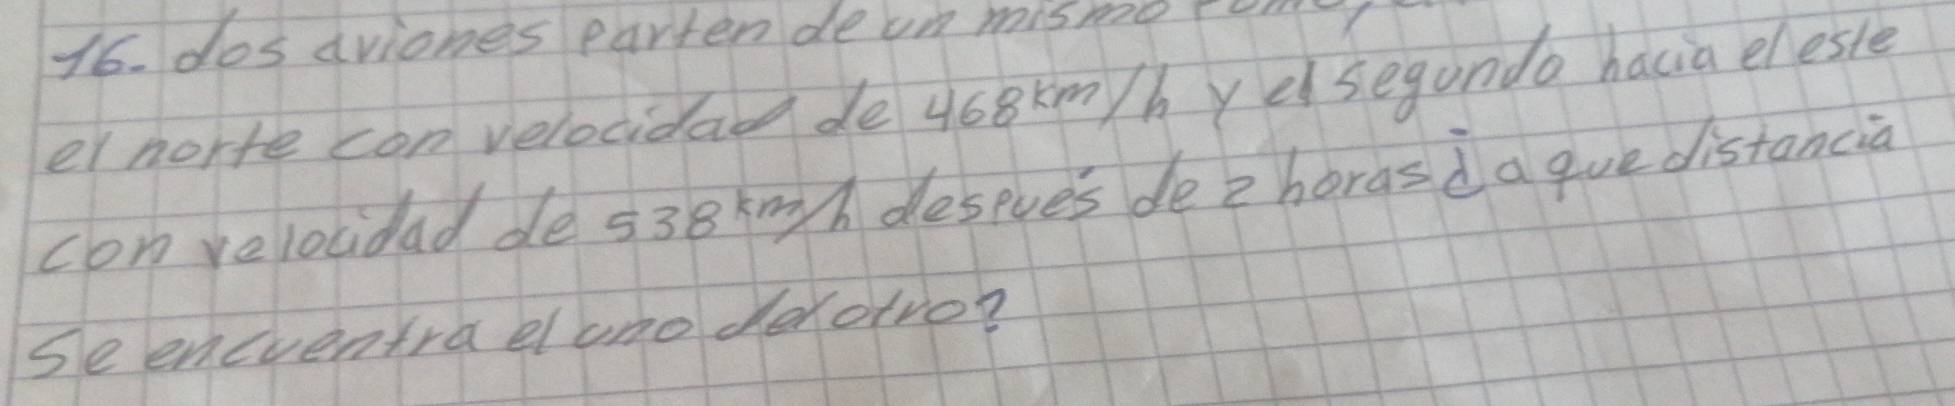 16. dos aviones parten de un mismo
el norte con velocidad de 468 km/h y el segundo hacia el este
con velocidad de 538 km/h después de 2 horas ¿a que distancia
se encuentra el uno del otro?